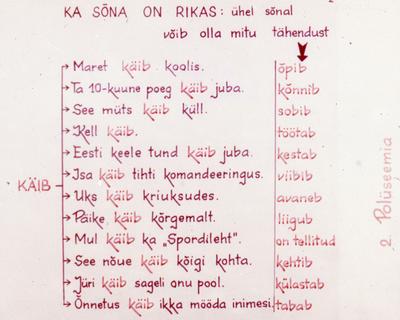 KA SÕNA ON RIKAS: ühel sõnal
võib olla mitu tähendust
KÄIB
Maret käib koolis. õpib
Ta 10-kuune poeg käib juba. kõnnib
See müts käib küll. sobib
Kell käib. töötab
Eesti keele tund käib juba. kestab
Isa käib tihti komandeeringus. viibib
Uks käib kriuksudes. avaneb
Päike käib kõrgemalt. liigub
Mul käib ka „Spordileht". on tellitud
See nõue käib kõigi kohta. kehtib
Jüri käib sageli onu pool. külastab
Õnnetus käib ikka mööda inimesi. tabab
2. Polüseemia